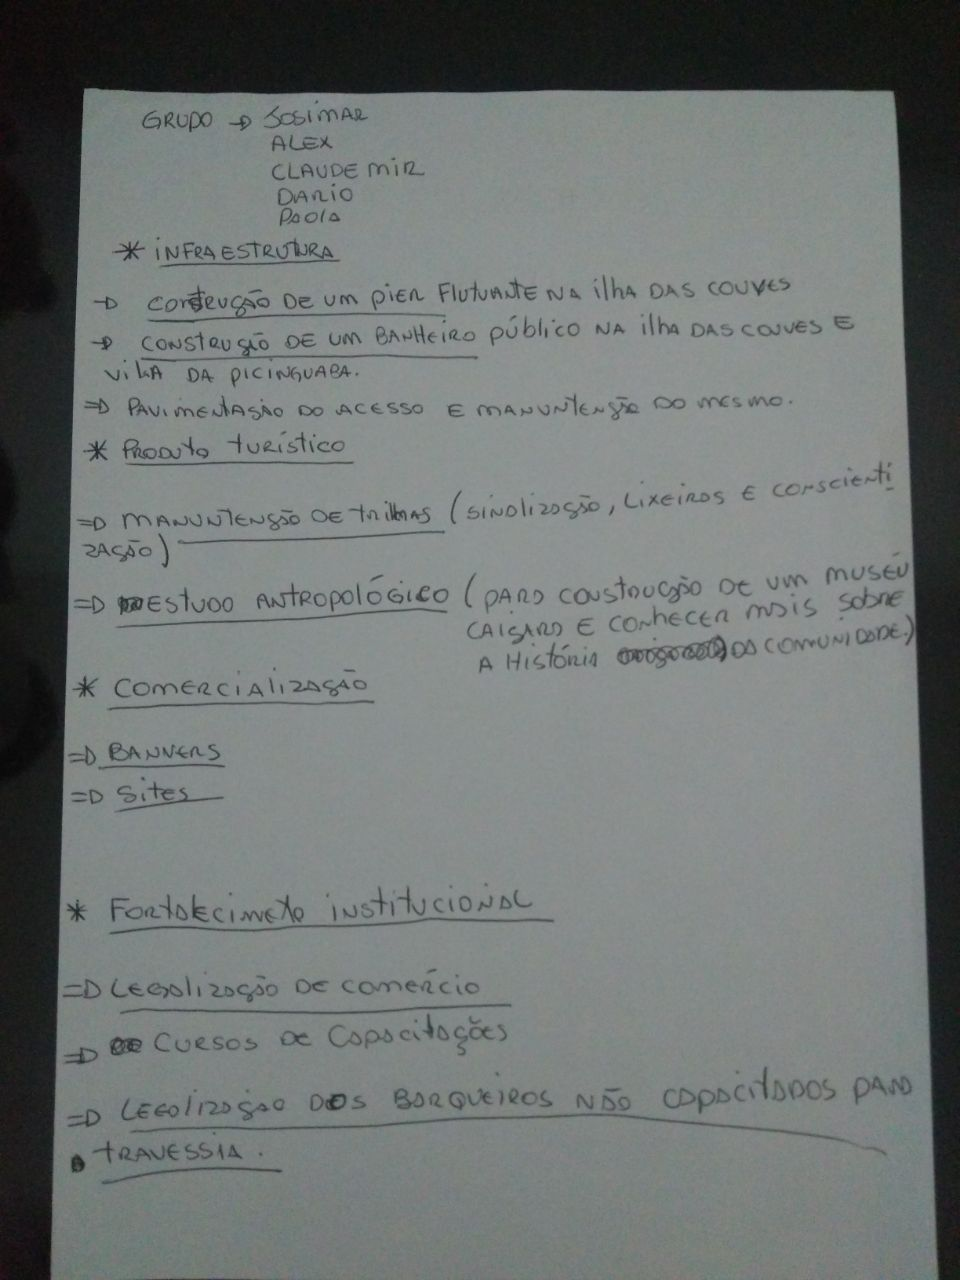 GRUPO → JOSIMAR
ALEX
CLAUDEMIR
DARIO
PAOLA
* INFRAESTRUTURA
→ CONSTRUÇÃO DE UM PIER FLUTUANTE NA ILHA DAS COUVES
→ CONSTRUÇÃO DE UM BANHEIRO PÚBLICO NA ILHA DAS COUVES E
VILA DA PICINGUABA.
⇒ PAVIMENTAÇÃO DO ACESSO E MANUNTENÇÃO DO MESMO.
* PRODUTO TURÍSTICO
⇒ MANUNTENSÃO DE TRILHAS (SINALIZAÇÃO, LIXEIRAS E CONSCIENTI
ZAÇÃO)
⇒ ESTUDO ANTROPOLÓGICO (PARA CONSTRUCÇÃO DE UM MUSEU
CAIÇARA E CONHECER MAIS SOBRE
A HISTÓRIA DA COMUNIDADE.)
* COMERCIALIZAÇÃO
⇒ BANNERS
⇒ SITES
* FORTALECIMETO INSTITUCIONAL
⇒ LEGALIZAÇÃO DE COMÉRCIO
⇒ CURSOS DE CAPACITAÇÕES
⇒ LEGALIZAÇÃO DOS BARQUEIROS NÃO CAPACITADOS PARA
TRAVESSIA.